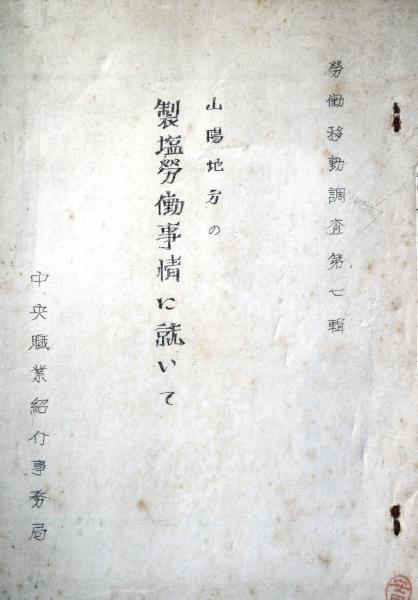 勞働移動調査第七輯
山陽地方の
製塩勞働事情に就いて
中央職業紹介事務局